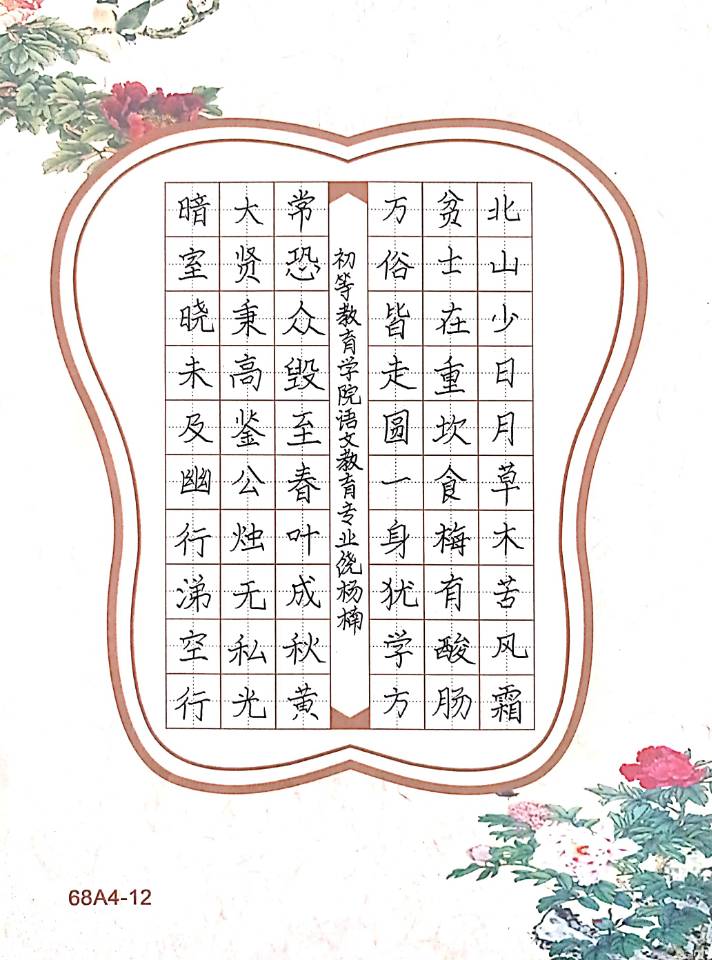 北山少日月草木苦风霜
贫士在重坎食梅有酸肠
万俗皆走圆一身犹学方
初等教育学院语文教育专业饶杨楠
常恐众毁至春叶成秋黄
大贤秉高鉴公烛无私光
暗室晓未及幽行涕空行
68A4-12